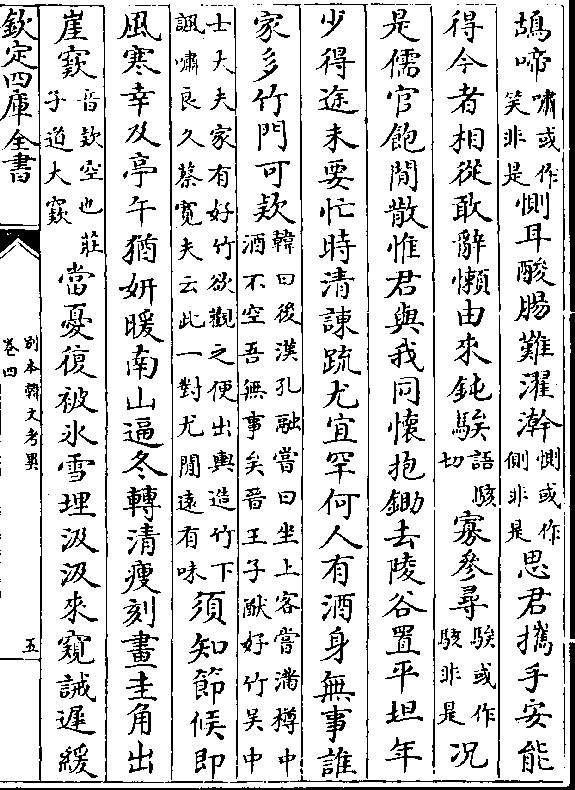 鴣啼嘯或作笑非是惻耳酸腸難濯澣惻或作側非是思君攜手安能
得今者相從敢辭懶由來鈍騃語駭切寡參尋騃或作駭非是況
是儒官飽閒散惟君與我同懷抱鋤去陵谷置平坦年
少得途未要忙時清諫疏尤宜罕何人有酒身無事誰
家多竹門可欵韓曰後漢孔融嘗曰坐上客嘗滿樽中酒不空吾無事矣晉王子猷好竹吳中
士大夫家有好竹欲觀之便出輿造竹下諷嘯良久蔡寬夫云此一對尤閒遠有味須知節候即
風寒幸及亭午猶妍暖南山逼冬轉清瘦刻畫圭角出
崖窾音欵空也莊子道大窾當憂復被冰雪埋汲汲來窺誡遲緩
欽定四庫全書
別本韓文考異
卷四
五